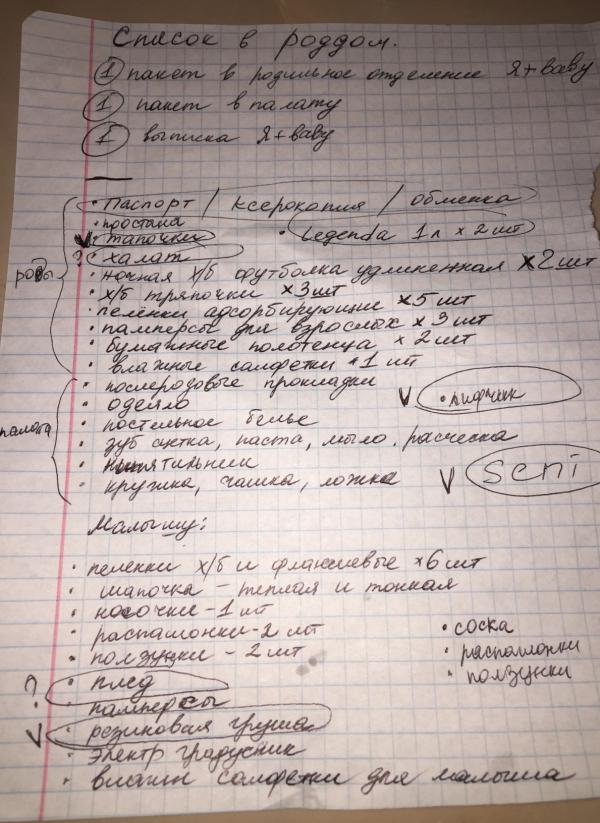 Список в роддом.
1 пакет в родильное отделение Я+baby
1 пакет в палату
1 выписка Я+baby
• Паспорт / ксерокопия / обменка
• простынь
V • тапочки • Legenda 1л x 2 шт
? • халат
роды
• ночная х/б футболка удлиненная x2 шт
• х/б тряпочки x3 шт
• пелёнки адсорбирующие x5 шт
• памперсы для взрослых x 3 шт
• бумажные полотенца x 2 шт
• влажные салфетки 1 шт
• послеродовые прокладки
• одеяло V • лифчик
• постельное белье
палата
• зуб щетка, паста, мыло, расческа
• кипятильник
• кружка, чашка, ложка V Seni
Малышу:
• пеленки х/б и фланелевые x6 шт
• шапочка - теплая и тонкая
• носочки - 1 шт
• распашонки - 2 шт • соска
• ползунки - 2 шт • распашонки
? • плед • ползунки
• памперсы
V • резиновая груша
• электр градусник
• влажн салфетки для малыша